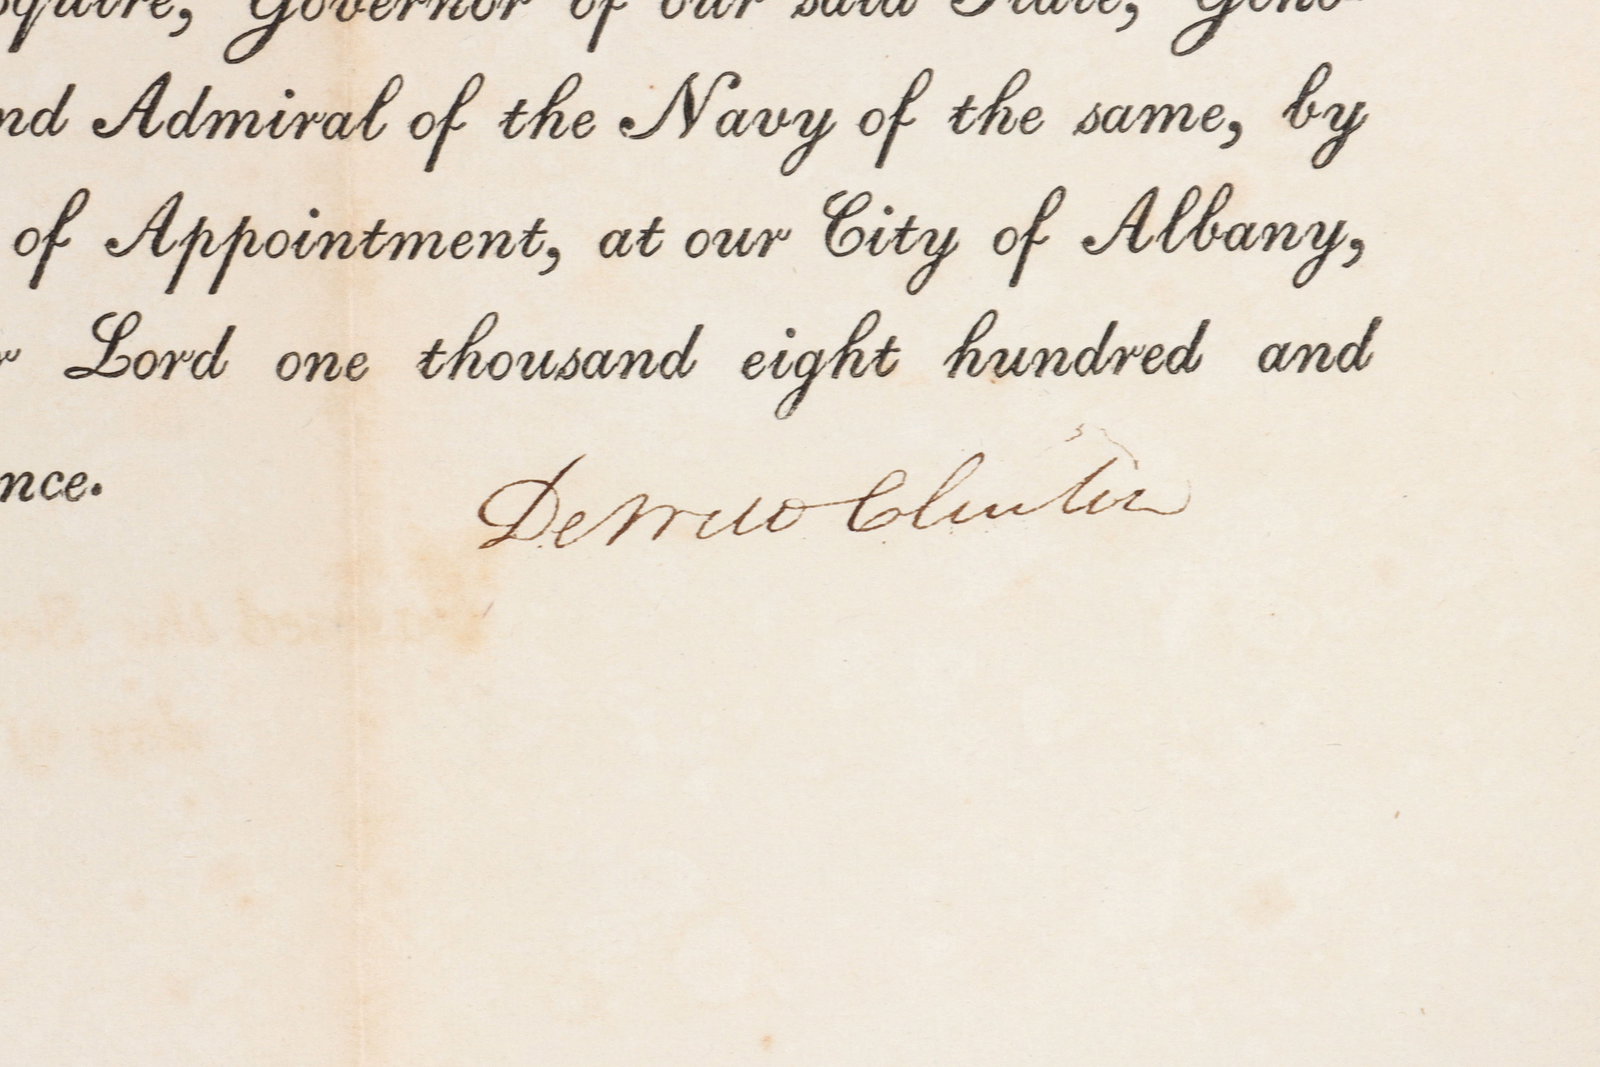 squire, Governor of our said State, Gene-
nd Admiral of the Navy of the same, by
of Appointment, at our City of Albany,
r Lord one thousand eight hundred and
nce.
DeWitt Clinton